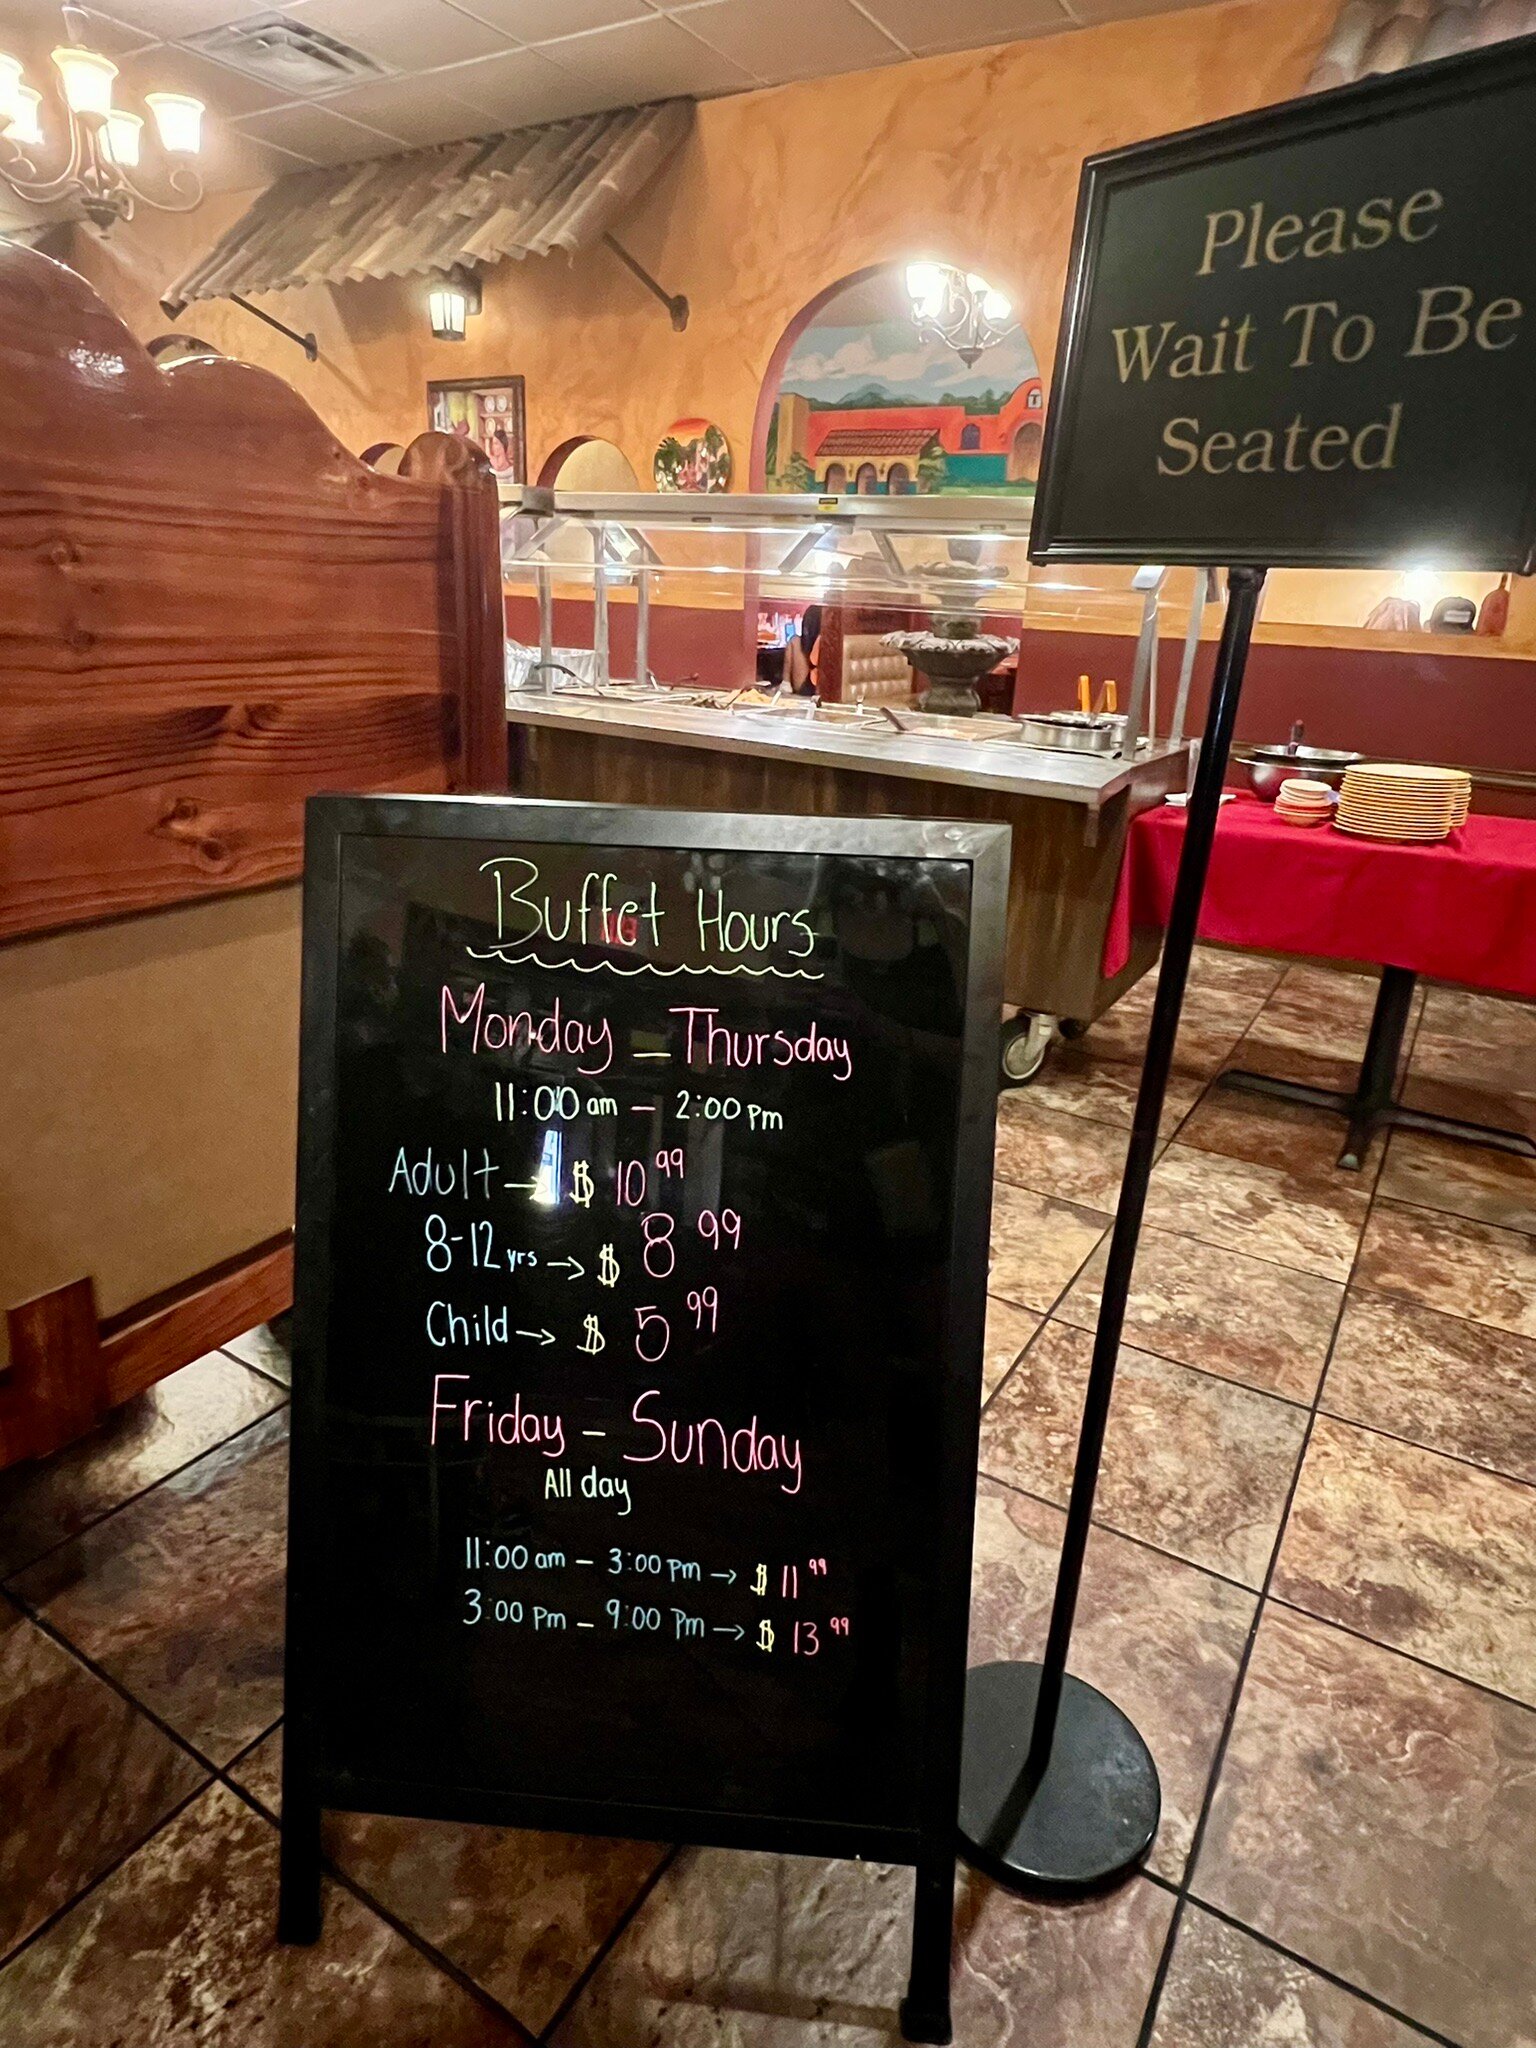 Please
Wait To Be
Seated
Buffet Hours
Monday - Thursday
11:00 am - 2:00 pm
Adult → $ 10 99
8-12 yrs → $ 8 99
Child → $ 5 99
Friday - Sunday
All day
11:00 am - 3:00 pm → $ 11 99
3:00 pm - 9:00 pm → $ 13 99